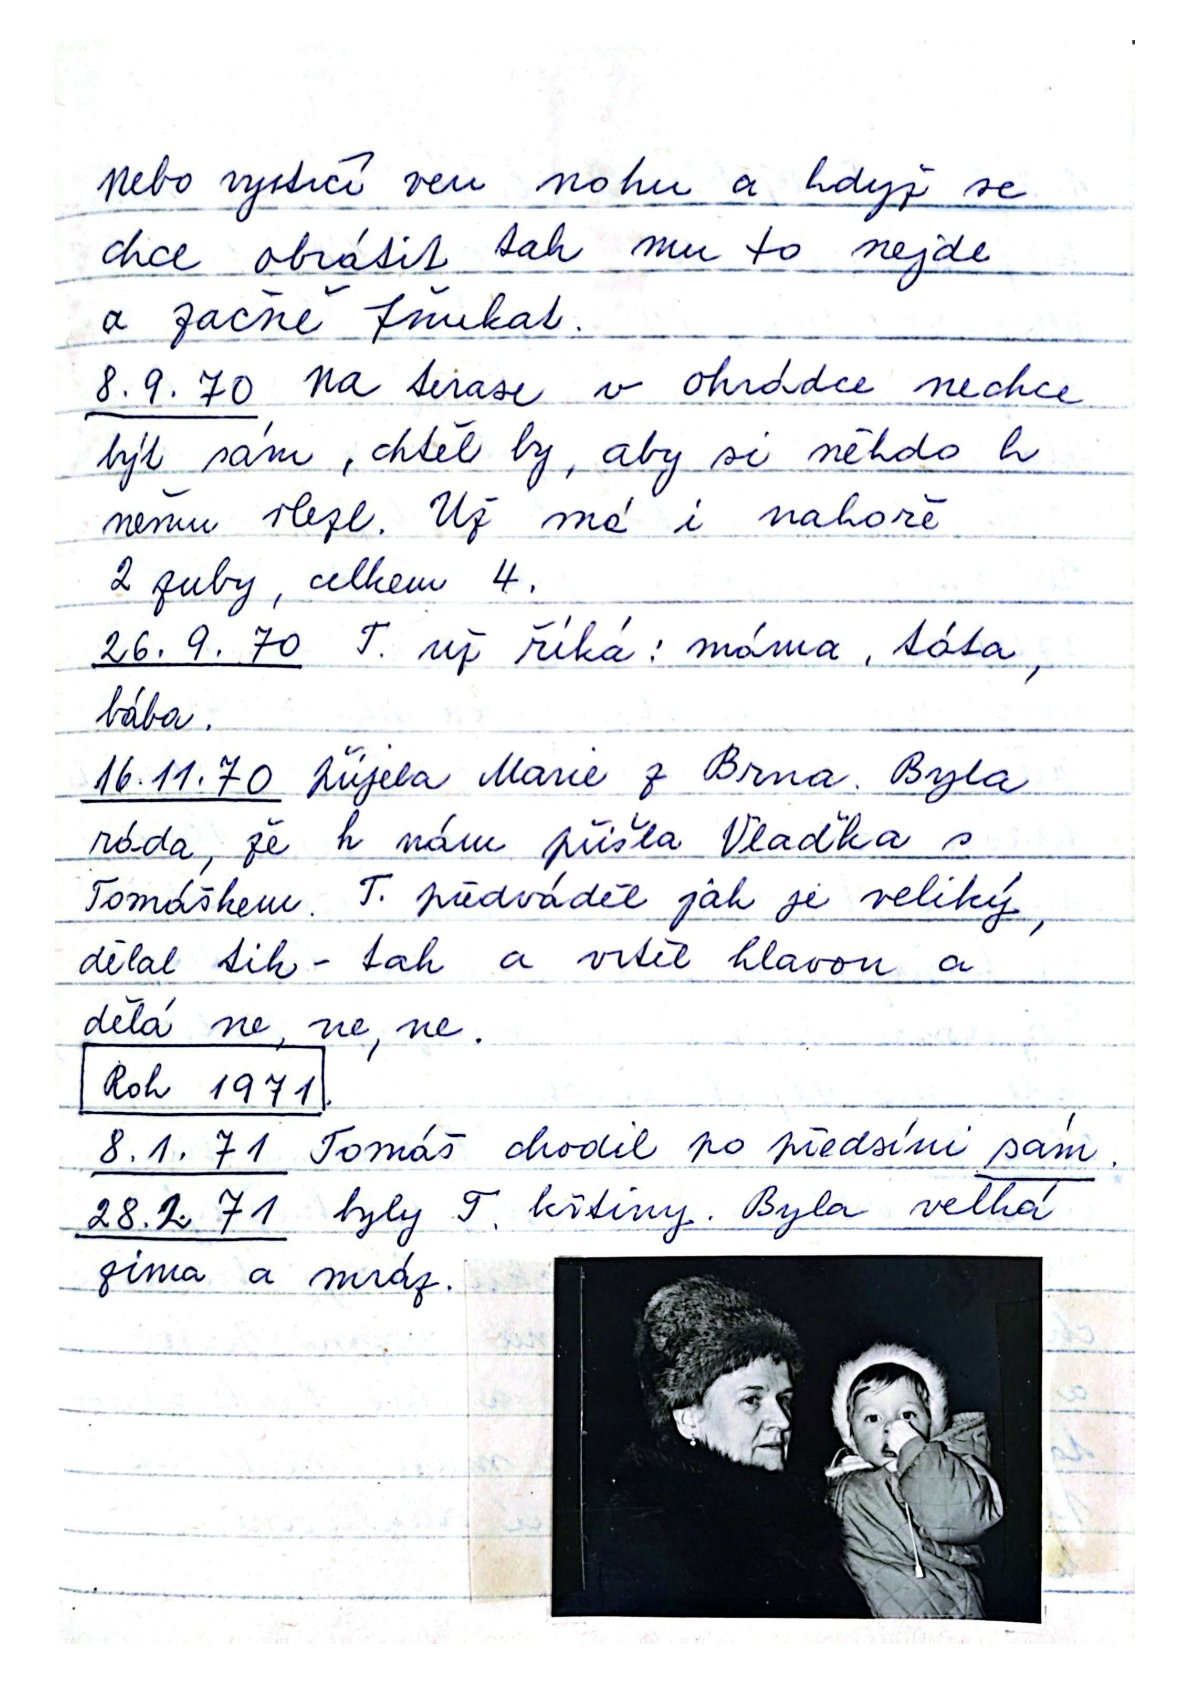 nebo vystrčí ven nohu a když se
chce obrátit tak mu to nejde
a začně fňukat.
8.9.70 Na terase v ohrádce nechce
být sám, chtěl by, aby si někdo k
němu vlezl. Už má i nahoře
2 zuby, celkem 4.
26.9.70 T. už říká: máma, táta,
bába.
16.11.70 přijela Marie z Brna. Byla
ráda, že k nám přišla Vlaďka s
Tomáškem. T. předváděl jak je veliký,
dělal tik-tak a vrtěl hlavou a
dělá ne, ne, ne.
Rok 1971.
8.1.71 Tomáš chodil po předsíni sám.
28.2.71 byly T. křtiny. Byla velká
zima a mráz.